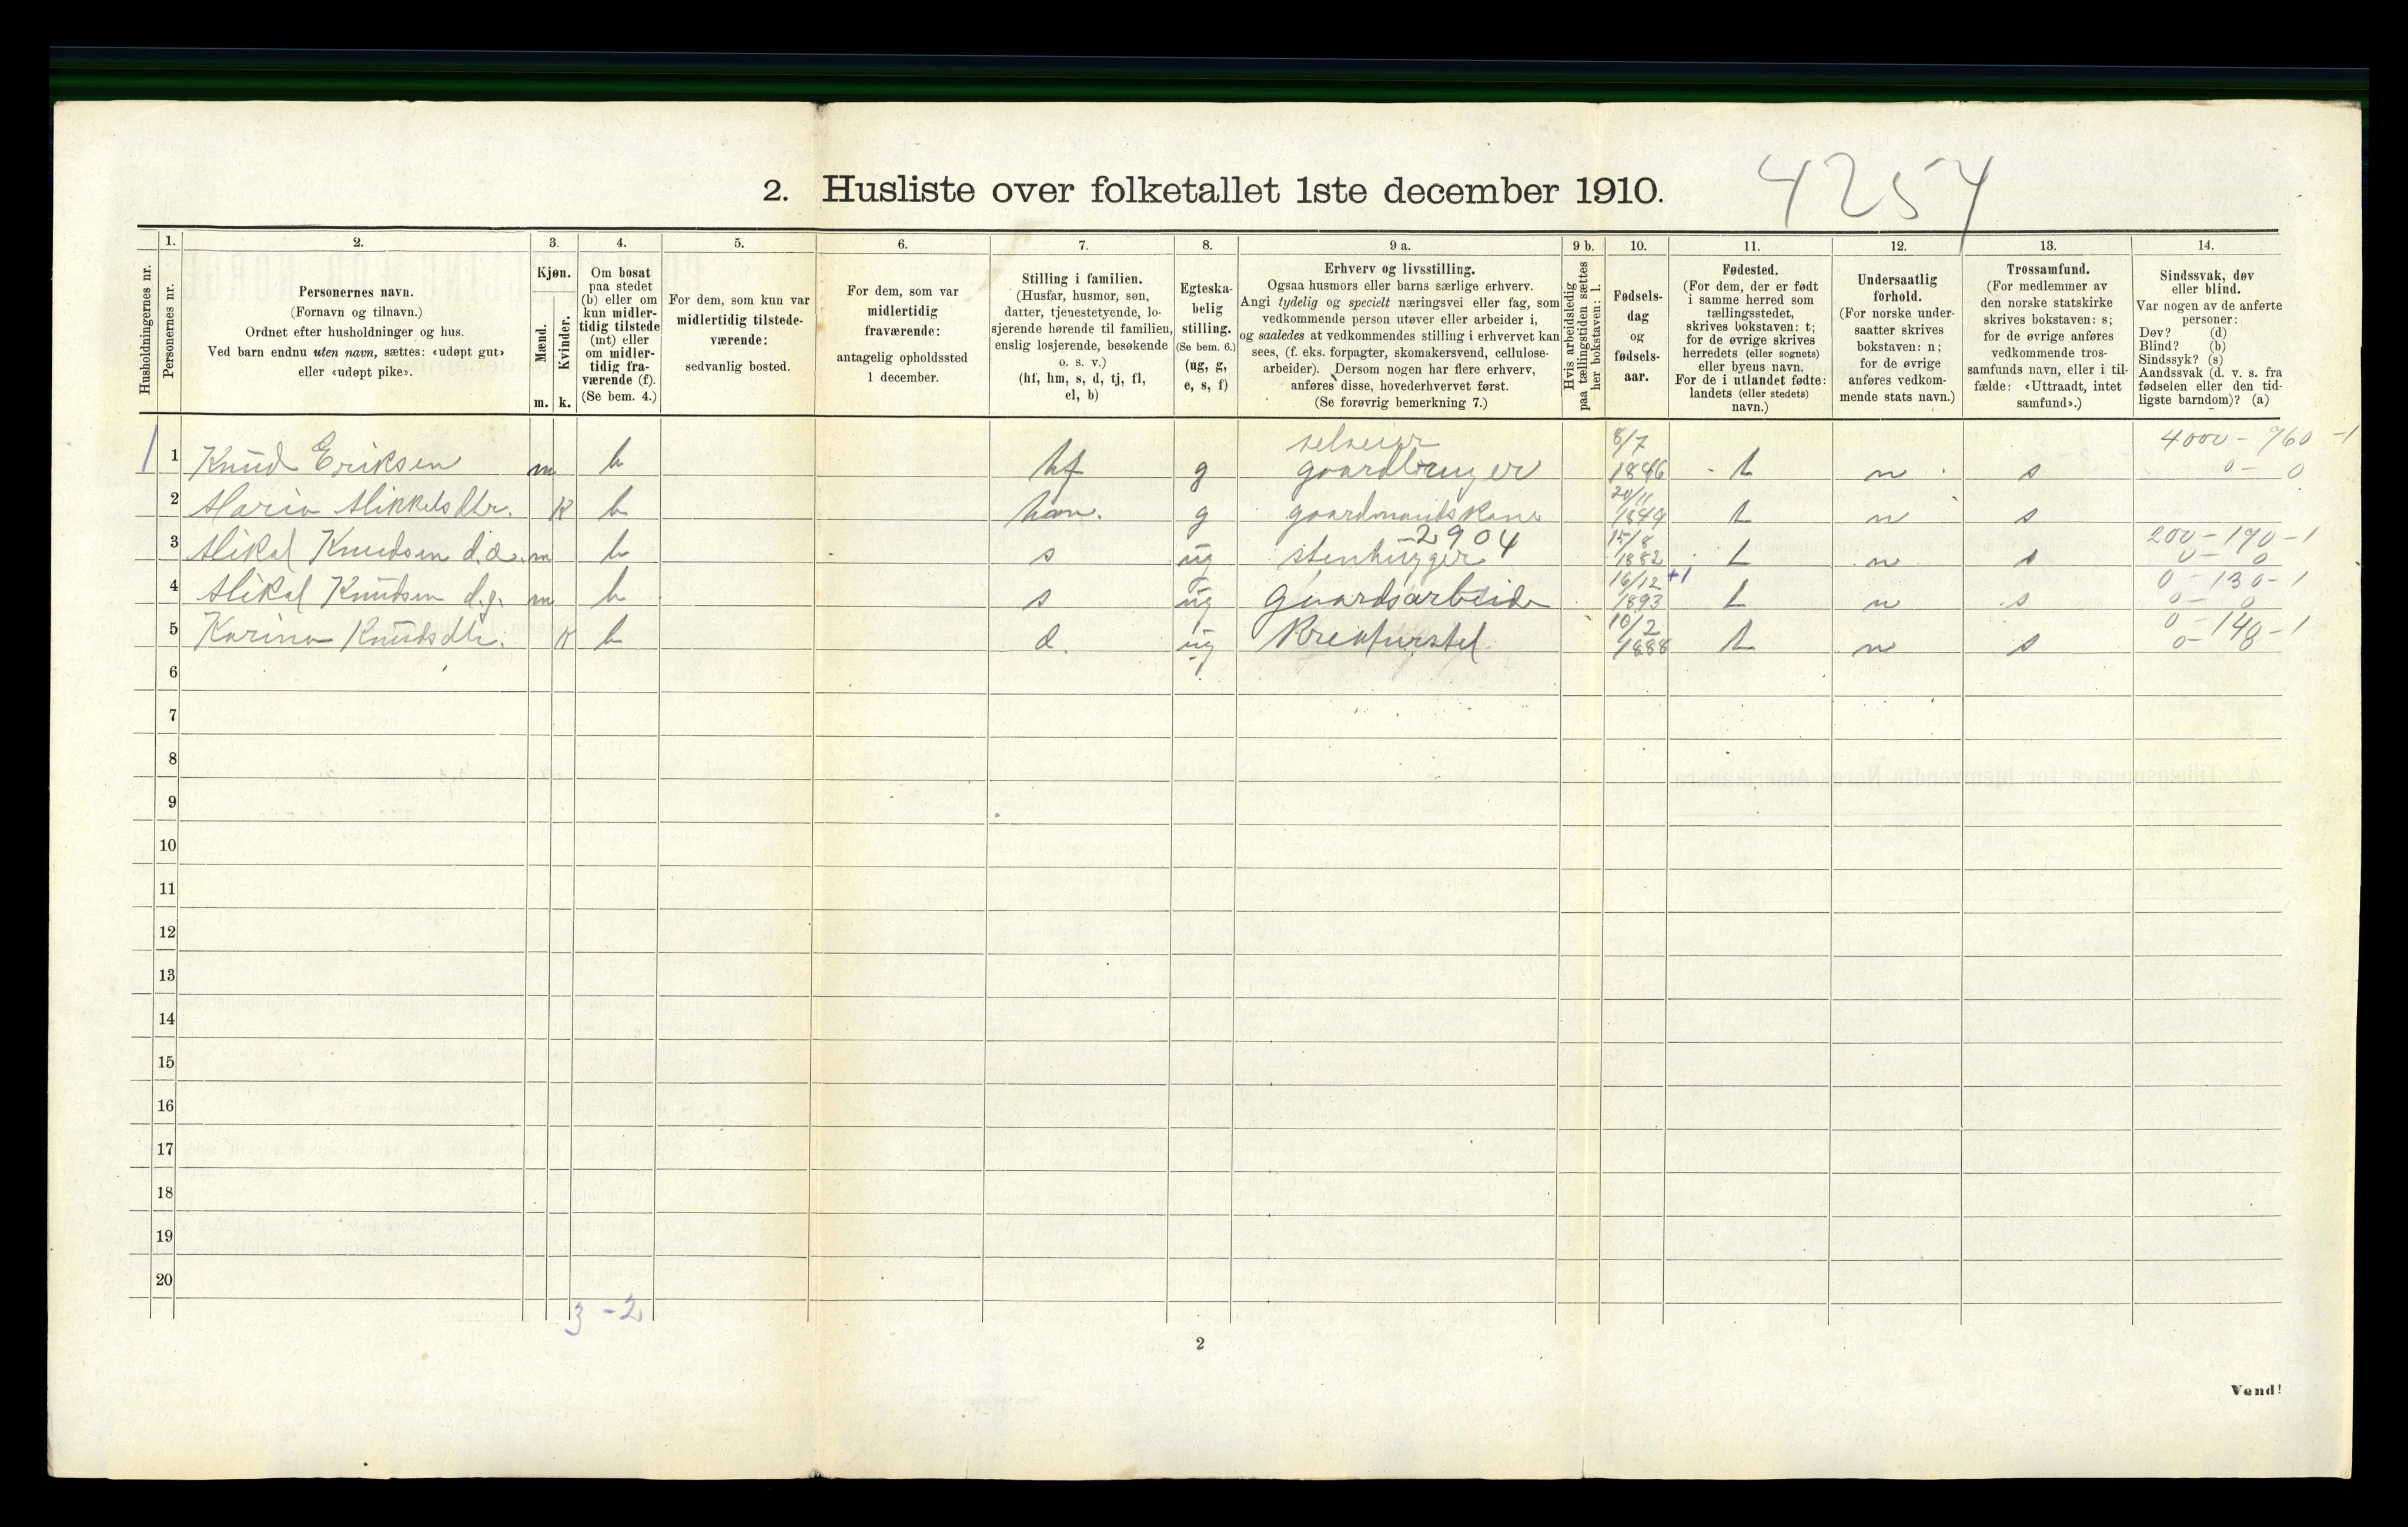 2. Husliste over folketallet 1ste december 1910.
4257
Husholdningernes nr.
1.
Personernes nr.
2.
Personernes navn.
(Fornavn og tilnavn.)
Ordnet efter husholdninger og hus.
Ved barn endnu uten navn, sættes: «udøpt gut»
eller «udøpt pike».
3.
Kjøn.
Mænd.
Kvinder.
m. k.
4.
Om bosat
paa stedet
(b) eller om
kun midler-
tidig tilstede
(mt) eller
om midler-
tidig fra-
værende (f).
(Se bem. 4.)
5.
For dem, som kun var
midlertidig tilstede-
værende:
sedvanlig bosted.
6.
For dem, som var
midlertidig
fraværende:
antagelig opholdssted
1 december.
7.
Stilling i familien.
(Husfar, husmor, søn,
datter, tjenestetyende, lo-
sjerende hørende til familien,
enslig losjerende, besøkende
o. s. v.)
(hf, hm, s, d, tj, fl,
el, b)
8.
Egteska-
belig
stilling.
(Se bem. 6.)
(ug, g,
e, s, f)
9 a.
Erhverv og livsstilling.
Ogsaa husmors eller barns særlige erhverv.
Angi tydelig og specielt næringsvei eller fag, som
vedkommende person utøver eller arbeider i,
og saaledes at vedkommendes stilling i erhvervet kan
sees, (f. eks. forpagter, skomakersvend, cellulose-
arbeider). Dersom nogen har flere erhverv,
anføres disse, hovederhvervet først.
(Se forøvrig bemerkning 7.)
9 b.
Hvis arbeidsledig
paa tællingstiden sættes
her bokstaven: l.
10.
Fødsels-
dag
og
fødsels-
aar.
11.
Fødested.
(For dem, der er født
i samme herred som
tællingsstedet,
skrives bokstaven: t;
for de øvrige skrives
herredets (eller sognets)
eller byens navn.
For de i utlandet fødte:
landets (eller stedets)
navn.)
12.
Undersaatlig
forhold.
(For norske under-
saatter skrives
bokstaven: n;
for de øvrige
anføres vedkom-
mende stats navn.)
13.
Trossamfund.
(For medlemmer av
den norske statskirke
skrives bokstaven: s;
for de øvrige anføres
vedkommende tros-
samfunds navn, eller i til-
fælde: «Uttraadt, intet
samfund».)
14.
Sindssvak, døv
eller blind.
Var nogen av de anførte
personer:
Døv? (d)
Blind? (b)
Sindssyk? (s)
Aandssvak (d. v. s. fra
fødselen eller den tid-
ligste barndom)? (a)
selveier 8/7 4000 - 760 - 1
1 1 Knud Eriksen m b hf g gaardbruger 1846 t n s 0 - 0
20/11
2 Maria Mikkelsdtr. K b hm. g gaardmandskone 1849 t n s
2904 15/8 200 - 190 - 1
3 Mikal Knudsen d.æ. m b s ug stenhugger 1882 t n s 0 - 0
16/12 +1 0 - 130 - 1
4 Mikal Knudsen d.y. m b s ug Gaardsarbeide 1893 t n s 0 - 0
10/2 0 - 140 - 1
5 Karina Knudsdtr. K b d. ug Kreaturstel 1888 t n s 0 -
6
7
8
9
10
11
12
13
14
15
16
17
18
19
20
3 - 2
2
Vend!